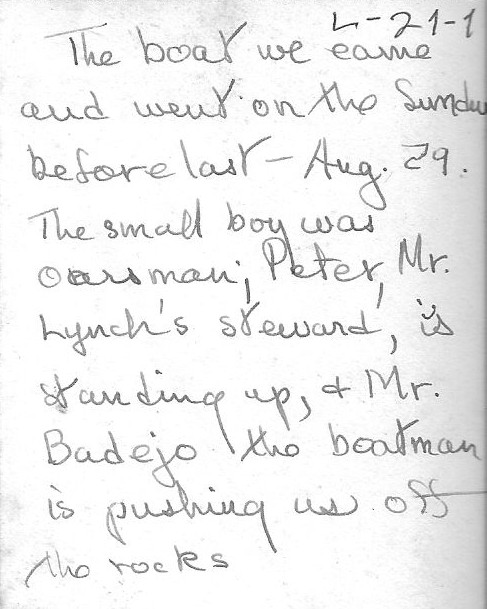 L-21-1
The boat we came
and went on the Sunday
before last – Aug. 29.
The small boy was
oarsman; Peter, Mr.
Lynch's steward, is
standing up, & Mr.
Badejo the boatman
is pushing us off
the rocks